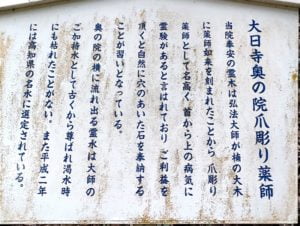 大日寺奥の院爪彫り薬師
当院奉安の霊木は弘法大師が楠の大木
に薬師如来を刻まれたことから 爪彫り
薬師として名高く 首から上の病気に
霊験があると言はれており ご利益を
頂くと自然に穴のあいた石を奉納する
ことが習いとなっている。
奥の院の横に流れ出る霊水は大師の
ご加持水として古くから尊ばれ渇水時
にも枯れたことがない。また平成二年
には高知県の名水に選定されている。